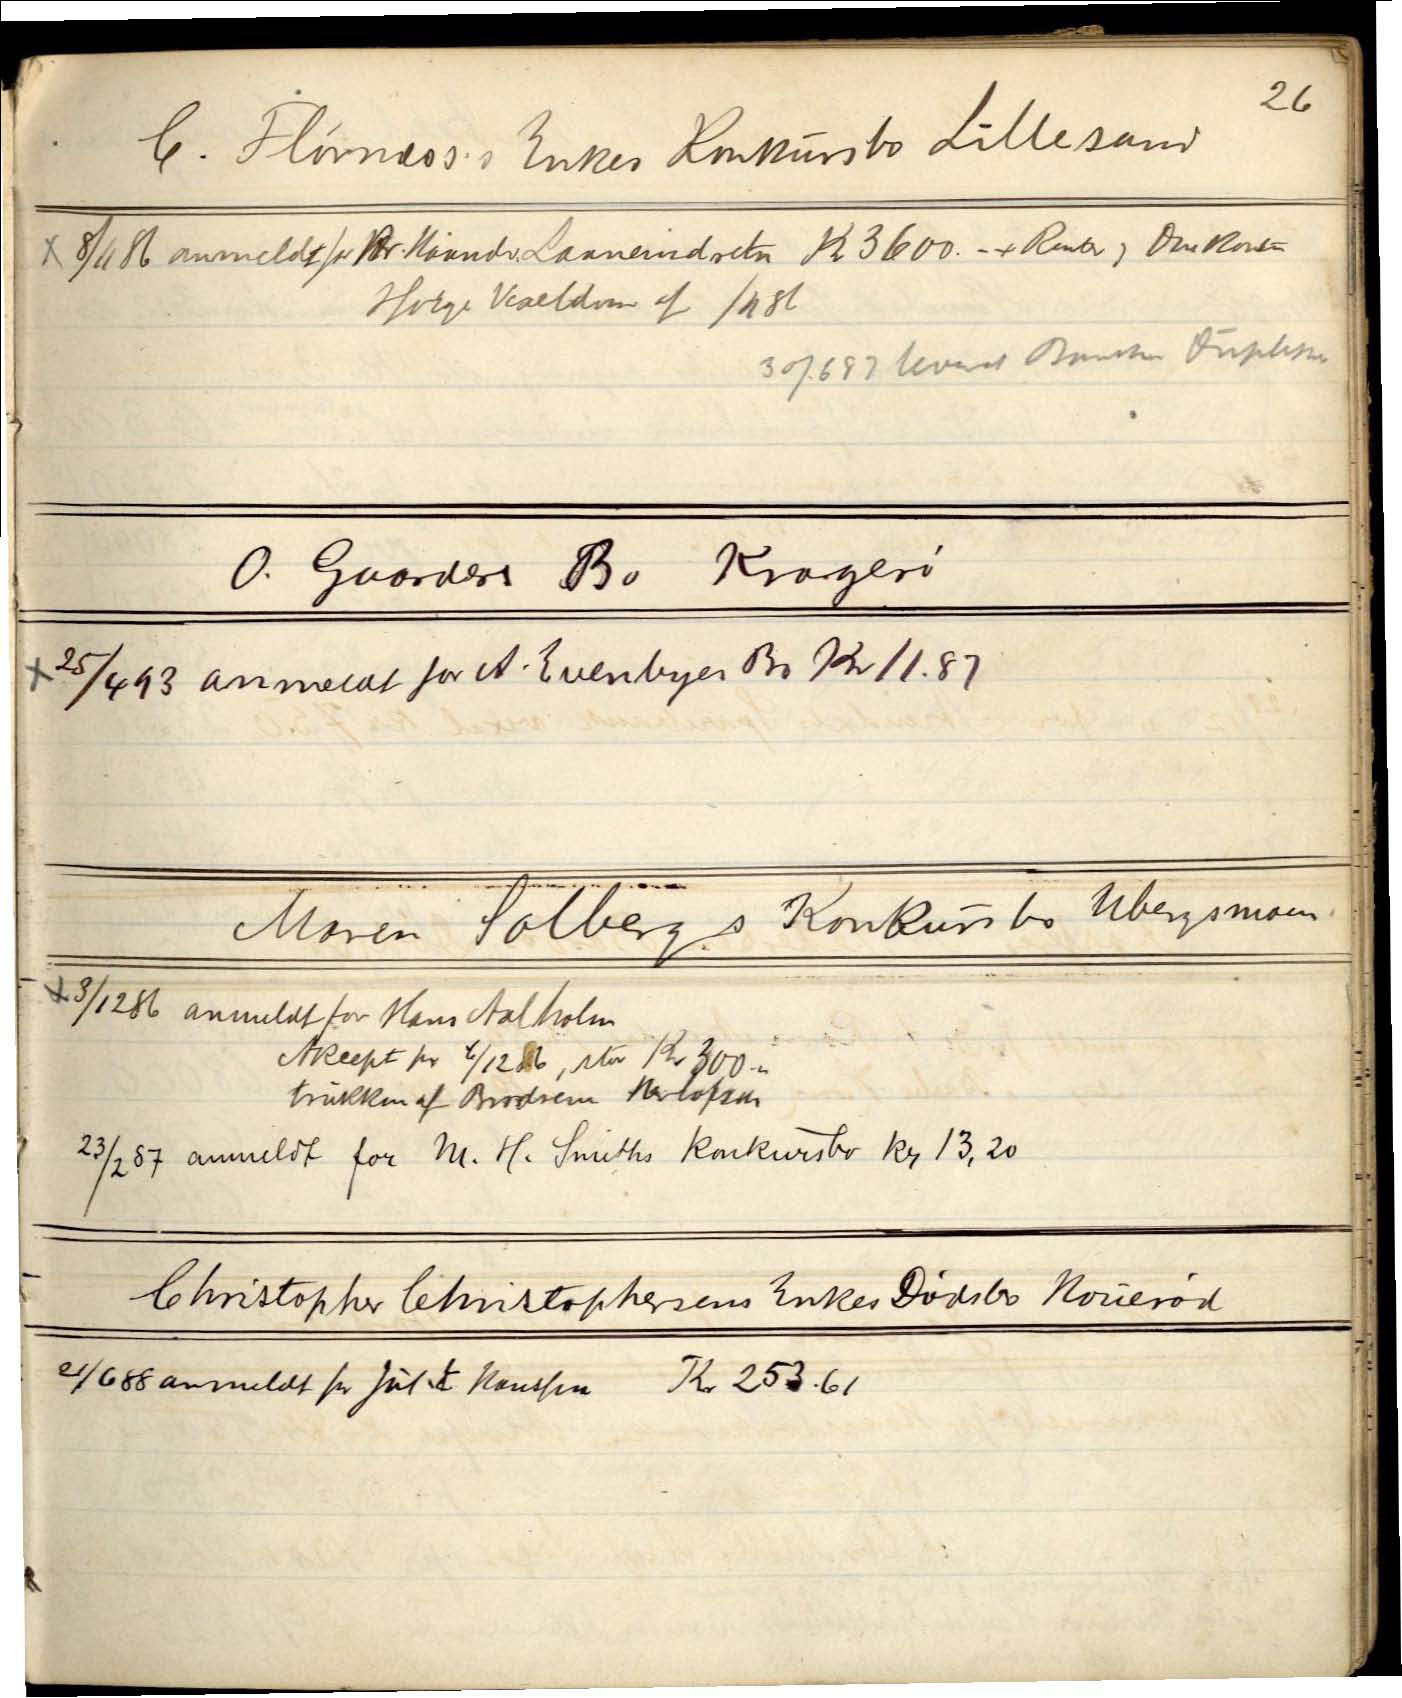 26
C. Flørnæs's Enkes Konkürsbo Lillesand
x 8/11 86 anmeldt for Kr. Haandv. Laaneindretn Kr 3600. - + Renter og Omkostn
ifølge Vexeldom af /11 86
30/6 87 leveret Duplikter
O. Gaarders Bo Kragerø
x 25/4 93 anmeldt for A. Evenbyes Bo Kr 11.87
Maren Solbergs Konkürsbo Ubergsmoen
x 3/12 86 anmeldt for Hans Aalholm
Akcept pr 4/12 86, stor Kr 300.-
trükken af Brødrene Herlofsen
23/2 87 anmeldt for M. H. Smiths Konkursbo Kr 13,20
Christopher Christophersens Enkes Dødsbo
21/6 88 anmeldt for Kr 253.61